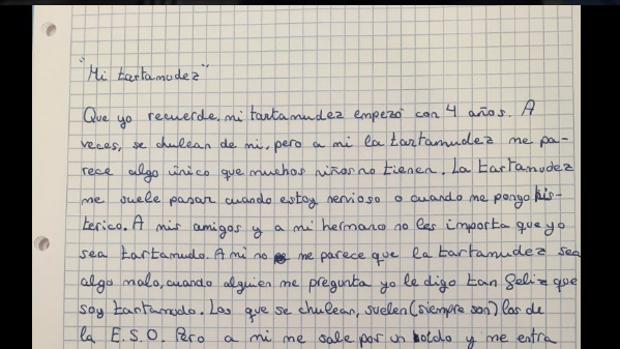 "Mi tartamudez"
Que yo recuerde, mi tartamudez empezó con 4 años. A
veces, se chulean de mi, pero a mi la tartamudez me pa-
rece algo único que muchos niños no tienen. La tartamudez
me suele pasar cuando estoy nervioso o cuando me pongo his-
terico. A mis amigos y a mi hermano no les importa que yo
sea tartamudo. A mi no me parece que la tartamudez sea
algo malo, cuando alguien me pregunta yo le digo tan feliz que
soy tartamudo. Los que se chulean, suelen (siempre son) los de
la E.S.O. Pero a mi me sale por un boldo y me entra